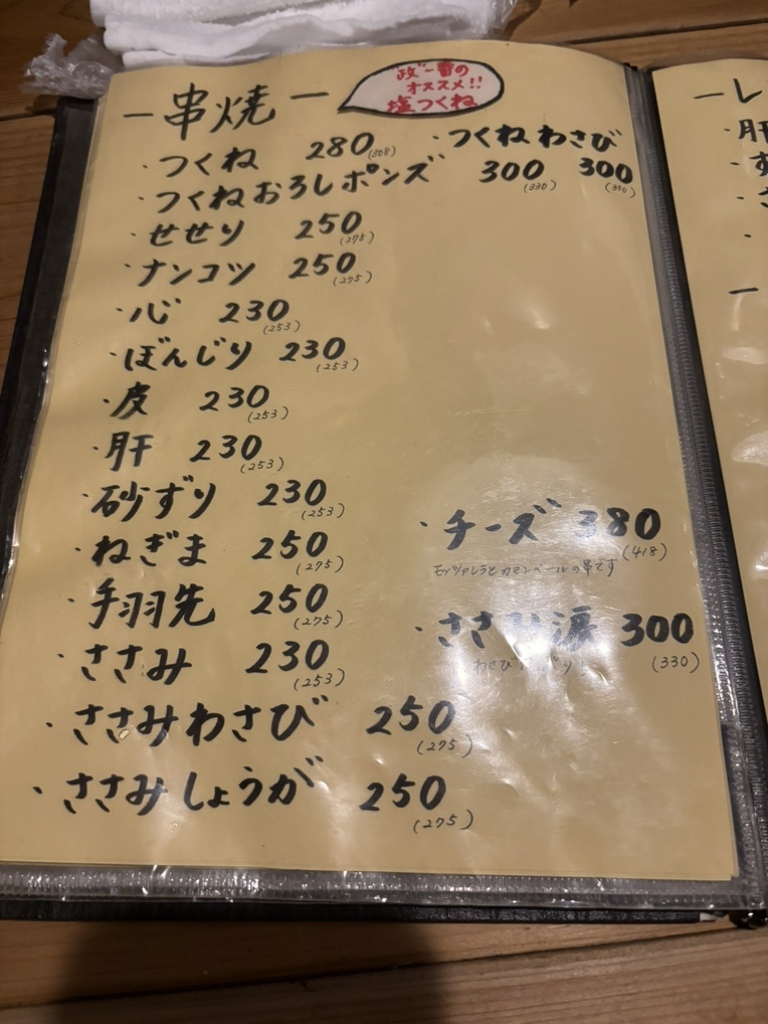 ー串焼ー
政一番の
オススメ!!
塩つくね
・つくね 280 (308)
・つくねわさび 300 (330)
・つくねおろしポンズ 300 (330)
・せせり 250 (275)
・ナンコツ 250 (275)
・心 230 (253)
・ぼんじり 230 (253)
・皮 230 (253)
・肝 230 (253)
・砂ずり 230 (253)
・ねぎま 250 (275)
・手羽先 250 (275)
・ささみ 230 (253)
・ささみわさび 250 (275)
・ささみしょうが 250 (275)
・チーズ 380 (418)
モッツァレラとカマンベールの串です
・ささみ涙 300 (330)
わさび
ーレ
・肝
・す
・さ